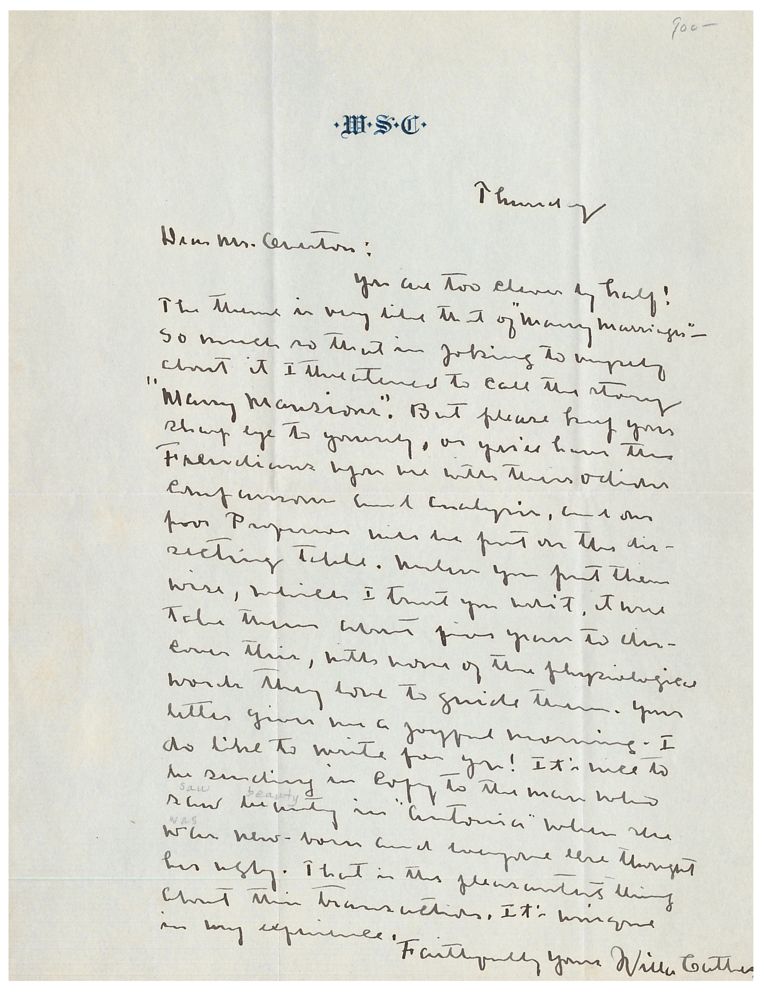 900—
·W·S·C·
Thursday
Dear Mr. Overton:
You are too clever by half!
The theme is very like that of "Many Marriages"—
So much so that in joking to myself
about it I threatened to call the story
"Many Mansions". But please keep your
sharp eye to yourself, or you'll have the
Freudians upon me with their odious
comparisons and analysis, and our
poor Professor will be put on the dis-
secting table. Unless you put them
wise, which I trust you won't, it will
take them about five years to dis-
cover this, with none of the physiological
words they love to guide them. Your
letter gives me a joyful morning. I
do like to write for you! It's nice to
be sending in copy to the man who
saw beauty
saw beauty in "Antonia" when she
was
was new-born and everyone else thought
her ugly. That is the pleasantest thing
about this transaction. It's unique
in my experience.
Faithfully yours Willa Cather